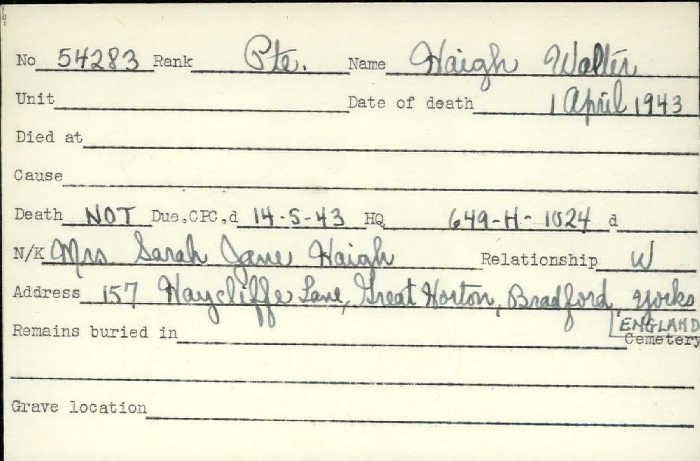 No 54283 Rank Pte. Name Haigh Walter
Unit Date of death 1 April 1943
Died at
Cause
Death NOT Due, CPC, d 14-5-43 HQ 649-H-1024 d
N/K Mrs Sarah Jane Haigh Relationship W
Address 157 Haycliffe Lane, Great Horton, Bradford, Yorks
ENGLAND
Remains buried in Cemetery
Grave location